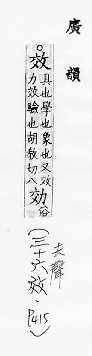 廣韻
○效具也學也象也又效力效驗也胡教切八効俗
去聲
(三十六效·P415)